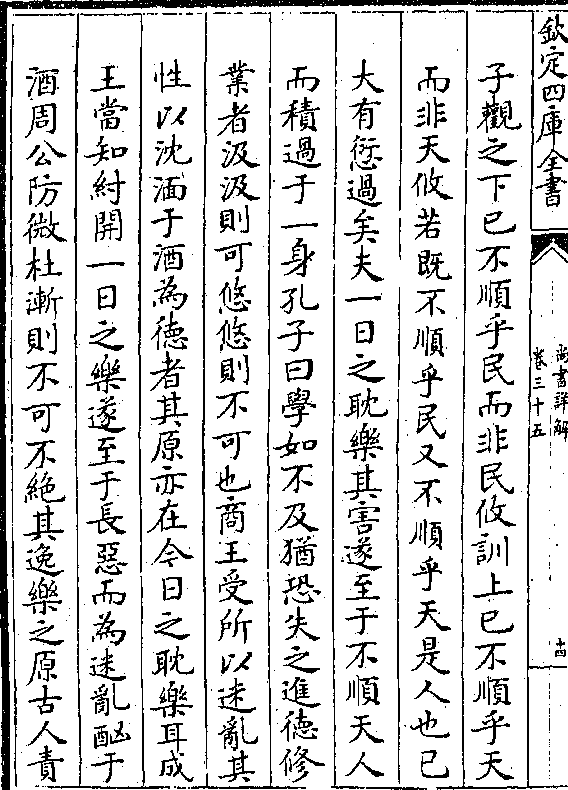 欽定四庫全書
尚書詳解
卷三十五
十四
子觀之下已不順乎民而非民攸訓上已不順乎天
而非天攸若既不順乎民又不順乎天是人也已
大有愆過矣夫一日之耽樂其害遂至于不順天人
而積過于一身孔子曰學如不及猶恐失之進德修
業者汲汲則可悠悠則不可也商王受所以迷亂其
性以沈湎于酒為德者其原亦在今日之耽樂耳成
王當知紂開一日之樂遂至于長惡而為迷亂酗于
酒周公防微杜漸則不可不絶其逸樂之原古人責